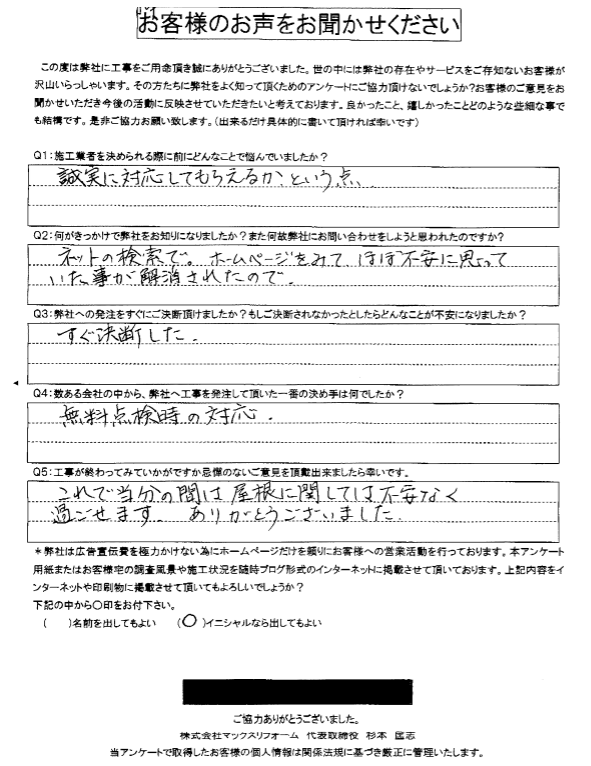 お客様のお声をお聞かせください
この度は弊社に工事をご用命頂き誠にありがとうございました。世の中には弊社の存在やサービスをご存知ないお客様が
沢山いらっしゃいます。その方たちに弊社をよく知って頂くためのアンケートにご協力頂けないでしょうか?お客様のご意見をお
聞かせいただき今後の活動に反映させていただきたいと考えております。良かったこと、嬉しかったことどのような些細な事で
も結構です。是非ご協力お願い致します。(出来るだけ具体的に書いて頂ければ幸いです)
Q1:施工業者を決められる際に前にどんなことで悩んでいましたか?
誠実に対応してもらえるか、という点、
Q2:何がきっかけで弊社をお知りになりましたか?また何故弊社にお問い合わせをしようと思われたのですか?
ネットの検索で。ホームページをみて、ほぼ不安に思って
いた事が解消されたので。
Q3:弊社への発注をすぐにご決断頂けましたか?もしご決断されなかったとしたらどんなことが不安になりましたか?
すぐ決断した。
Q4:数ある会社の中から、弊社へ工事を発注して頂いた一番の決め手は何でしたか?
無料点検時の対応。
Q5:工事が終わってみていかがですか忌憚のないご意見を頂戴出来ましたら幸いです。
これで当分の間は屋根に関しては不安なく
過ごせます。 ありがとうございました。
*弊社は広告宣伝費を極力かけない為にホームページだけを頼りにお客様への営業活動を行っております。本アンケート
用紙またはお客様宅の調査風景や施工状況を随時ブログ形式のインターネットに掲載させて頂いております。上記内容をイ
ンターネットや印刷物に掲載させて頂いてもよろしいでしょうか?
下記の中から〇印をお付下さい。
( )名前を出してもよい (〇)イニシャルなら出してもよい
ご協力ありがとうございました。
株式会社マックスリフォーム 代表取締役 杉本 匡志
当アンケートで取得したお客様の個人情報は関係法規に基づき厳正に管理いたします。